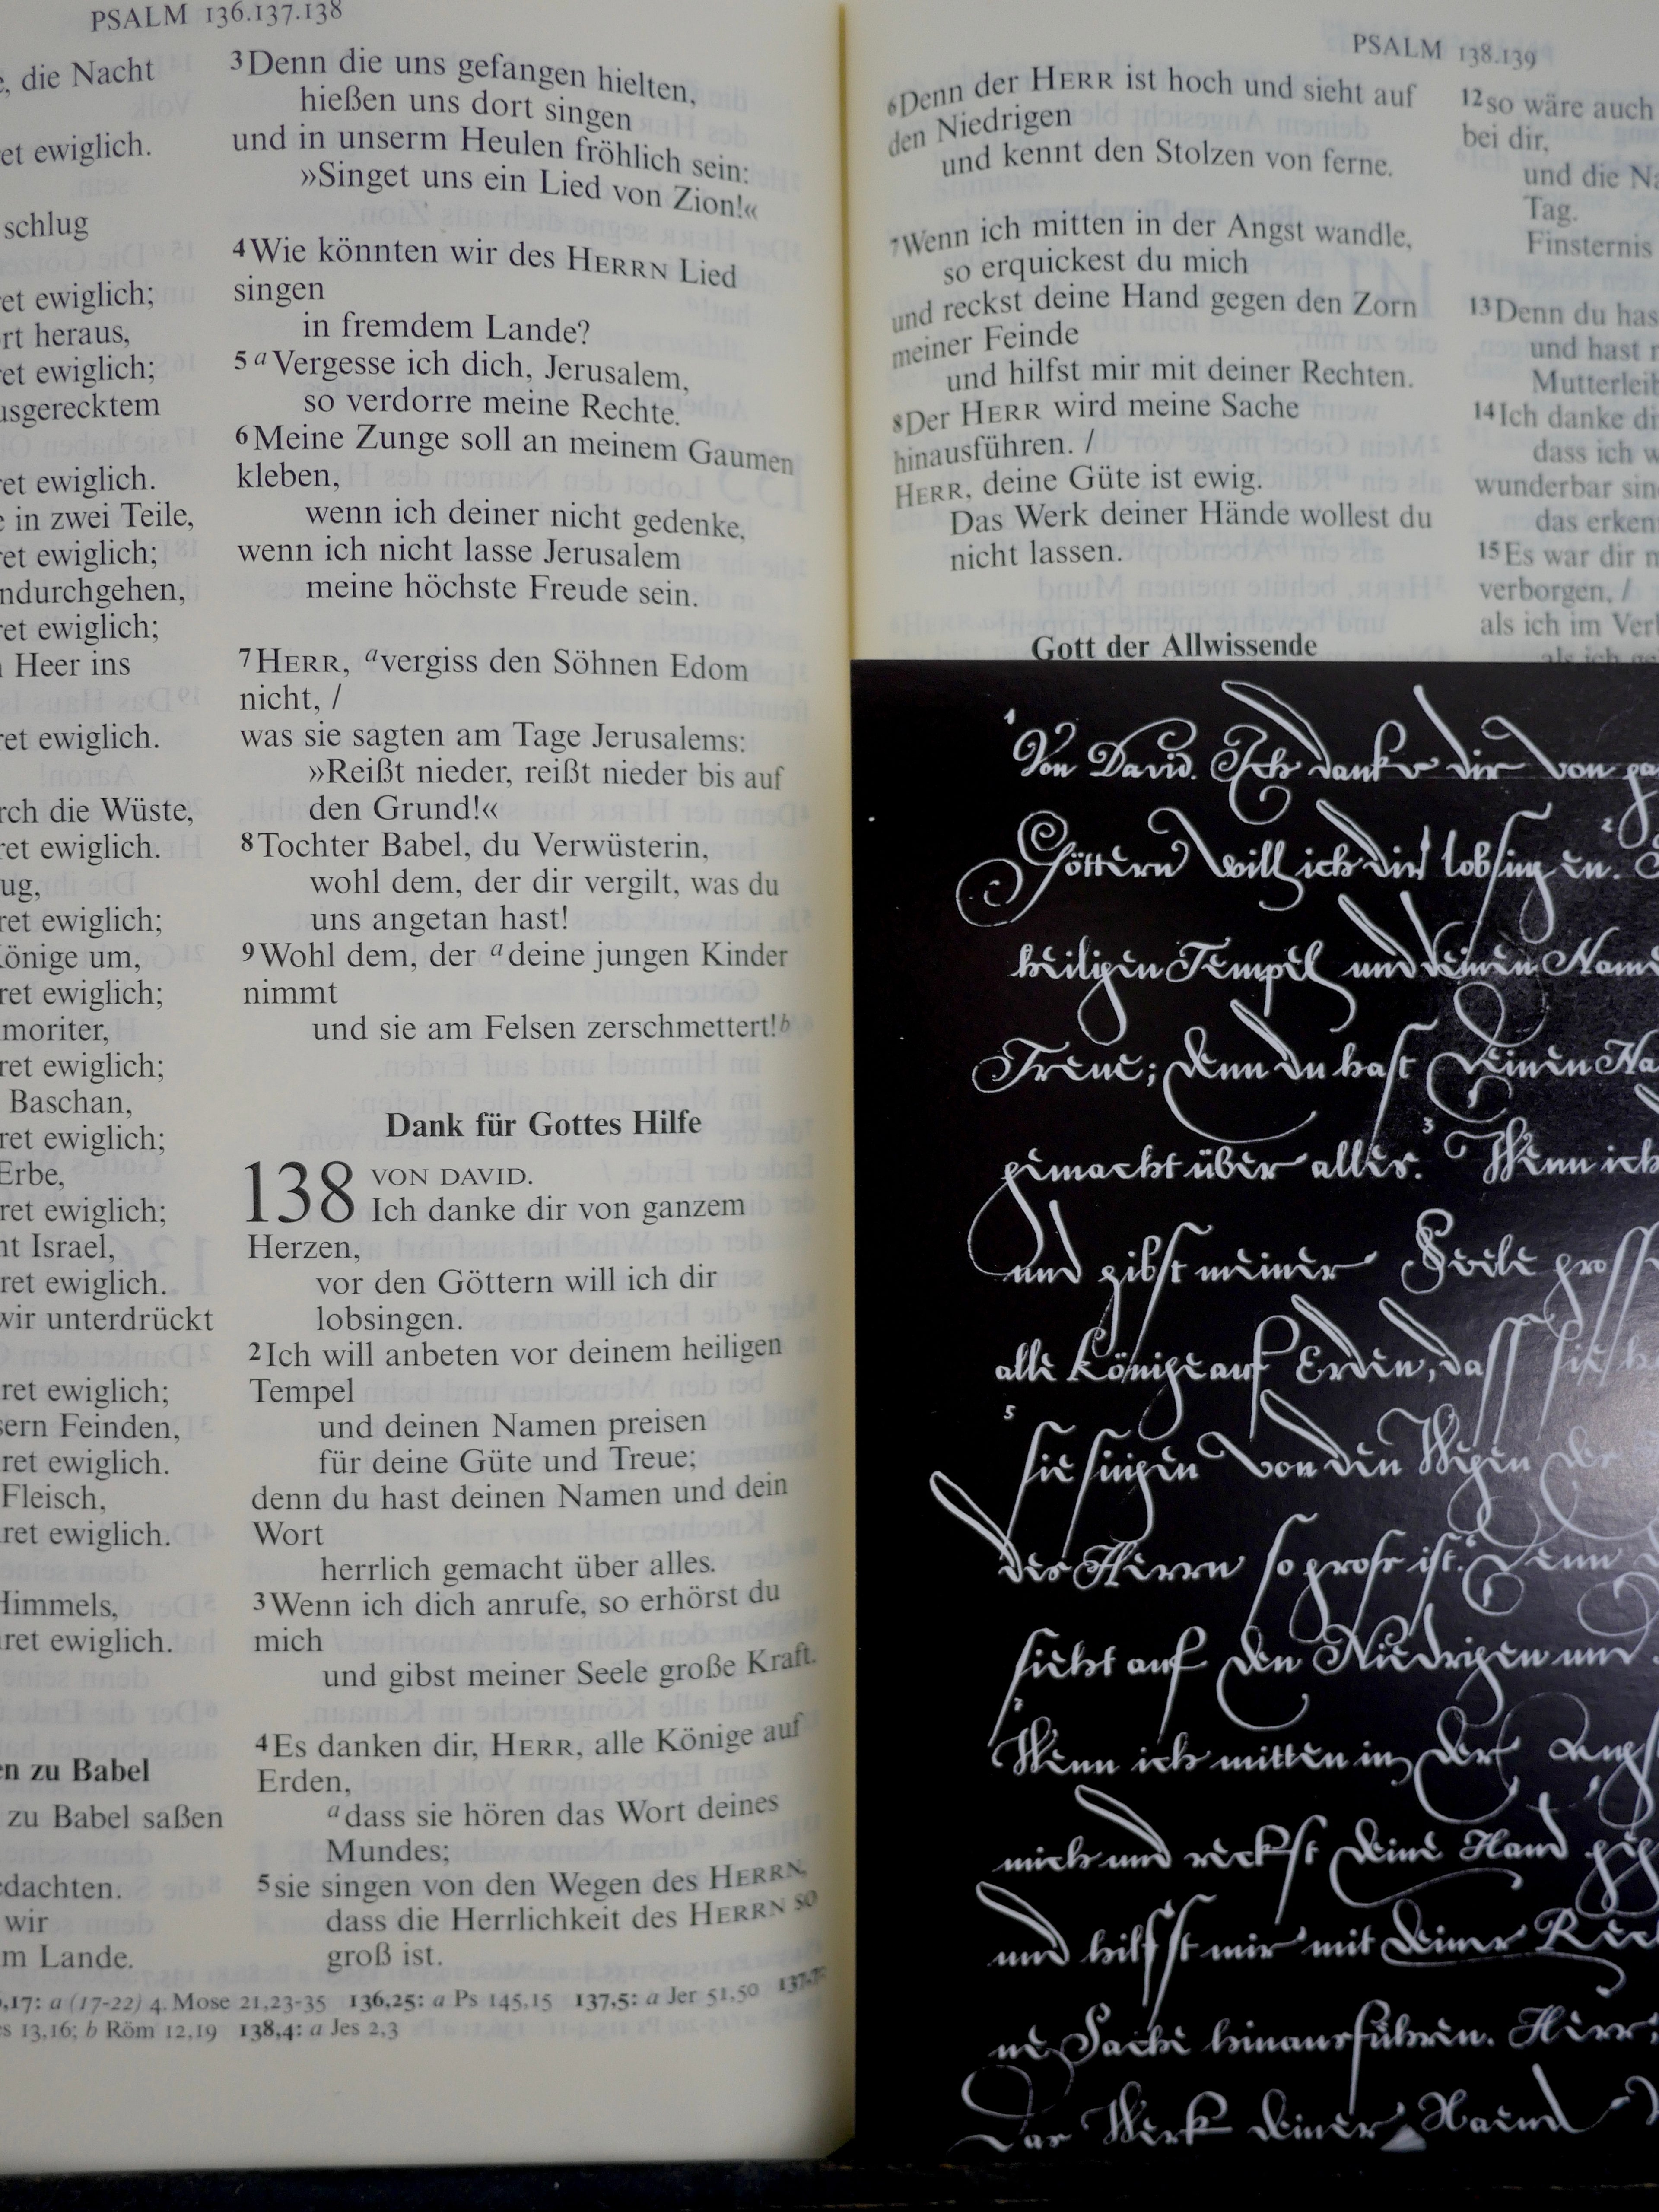 PSALM 136.137.138
die Nacht
ewiglich.
schlug
ewiglich;
heraus,
ewiglich;
ewiglich.
in zwei Teile,
ewiglich;
ewiglich;
Heer ins
ewiglich.
die Wüste,
ewiglich.
ewiglich;
um,
ewiglich;
ewiglich;
Baschan,
ewiglich;
Erbe,
ewiglich;
Israel,
ewiglich.
wir unterdrückt
ewiglich;
Feinden,
ewiglich.
Fleisch,
ewiglich.
Himmels,
ewiglich.
zu Babel
zu Babel saßen
wir
Lande.
3 Denn die uns gefangen hielten,
hießen uns dort singen
und in unserm Heulen fröhlich sein:
»Singet uns ein Lied von Zion!«
4 Wie könnten wir des HERRN Lied
singen
in fremdem Lande?
5 a Vergesse ich dich, Jerusalem,
so verdorre meine Rechte.
6 Meine Zunge soll an meinem Gaumen
kleben,
wenn ich deiner nicht gedenke,
wenn ich nicht lasse Jerusalem
meine höchste Freude sein.
7 HERR, a vergiss den Söhnen Edom
nicht, /
was sie sagten am Tage Jerusalems:
»Reißt nieder, reißt nieder bis auf
den Grund!«
8 Tochter Babel, du Verwüsterin,
wohl dem, der dir vergilt, was du
uns angetan hast!
9 Wohl dem, der a deine jungen Kinder
nimmt
und sie am Felsen zerschmettert! b
Dank für Gottes Hilfe
138 VON DAVID.
Ich danke dir von ganzem
Herzen,
vor den Göttern will ich dir
lobsingen.
2 Ich will anbeten vor deinem heiligen
Tempel
und deinen Namen preisen
für deine Güte und Treue;
denn du hast deinen Namen und dein
Wort
herrlich gemacht über alles.
3 Wenn ich dich anrufe, so erhörst du
mich
und gibst meiner Seele große Kraft.
4 Es danken dir, HERR, alle Könige auf
Erden,
a dass sie hören das Wort deines
Mundes;
5 sie singen von den Wegen des HERRN,
dass die Herrlichkeit des HERRN so
groß ist.
a (17-22) 4. Mose 21,23-35 136,25: a Ps 145,15 137,5: a Jer 51,50 137,7:
13,16; b Röm 12,19 138,4: a Jes 2,3
PSALM 138.139
6 Denn der HERR ist hoch und sieht auf
den Niedrigen
und kennt den Stolzen von ferne.
7 Wenn ich mitten in der Angst wandle,
so erquickest du mich
und reckst deine Hand gegen den Zorn
meiner Feinde
und hilfst mir mit deiner Rechten.
8 Der HERR wird meine Sache
hinausführen. /
HERR, deine Güte ist ewig.
Das Werk deiner Hände wollest du
nicht lassen.
Gott der Allwissende
12 so wäre auch
bei dir,
und die
Tag.
Finsternis
13 Denn du
und hast
14 Ich danke
dass ich
wunderbar
das
15 Es war dir
verborgen, /
als ich im
als ich
1 Von David. Ich danke dir von
Göttern will ich dir lobsingen. 2
heiligen Tempel und deinen
Treue; denn du hast deinen
gemacht über alles. 3 Wenn ich
und gibst meiner Seele
alle Könige auf Erden, dass sie
5 sie singen von den Wegen des
des Herrn so gross ist. Denn
sieht auf den Niedrigen und
7 Wenn ich mitten in der
mich und reckst deine Hand
und hilfst mir mit deiner
ne Sache hinausführen. Herr,
Das Werk deiner